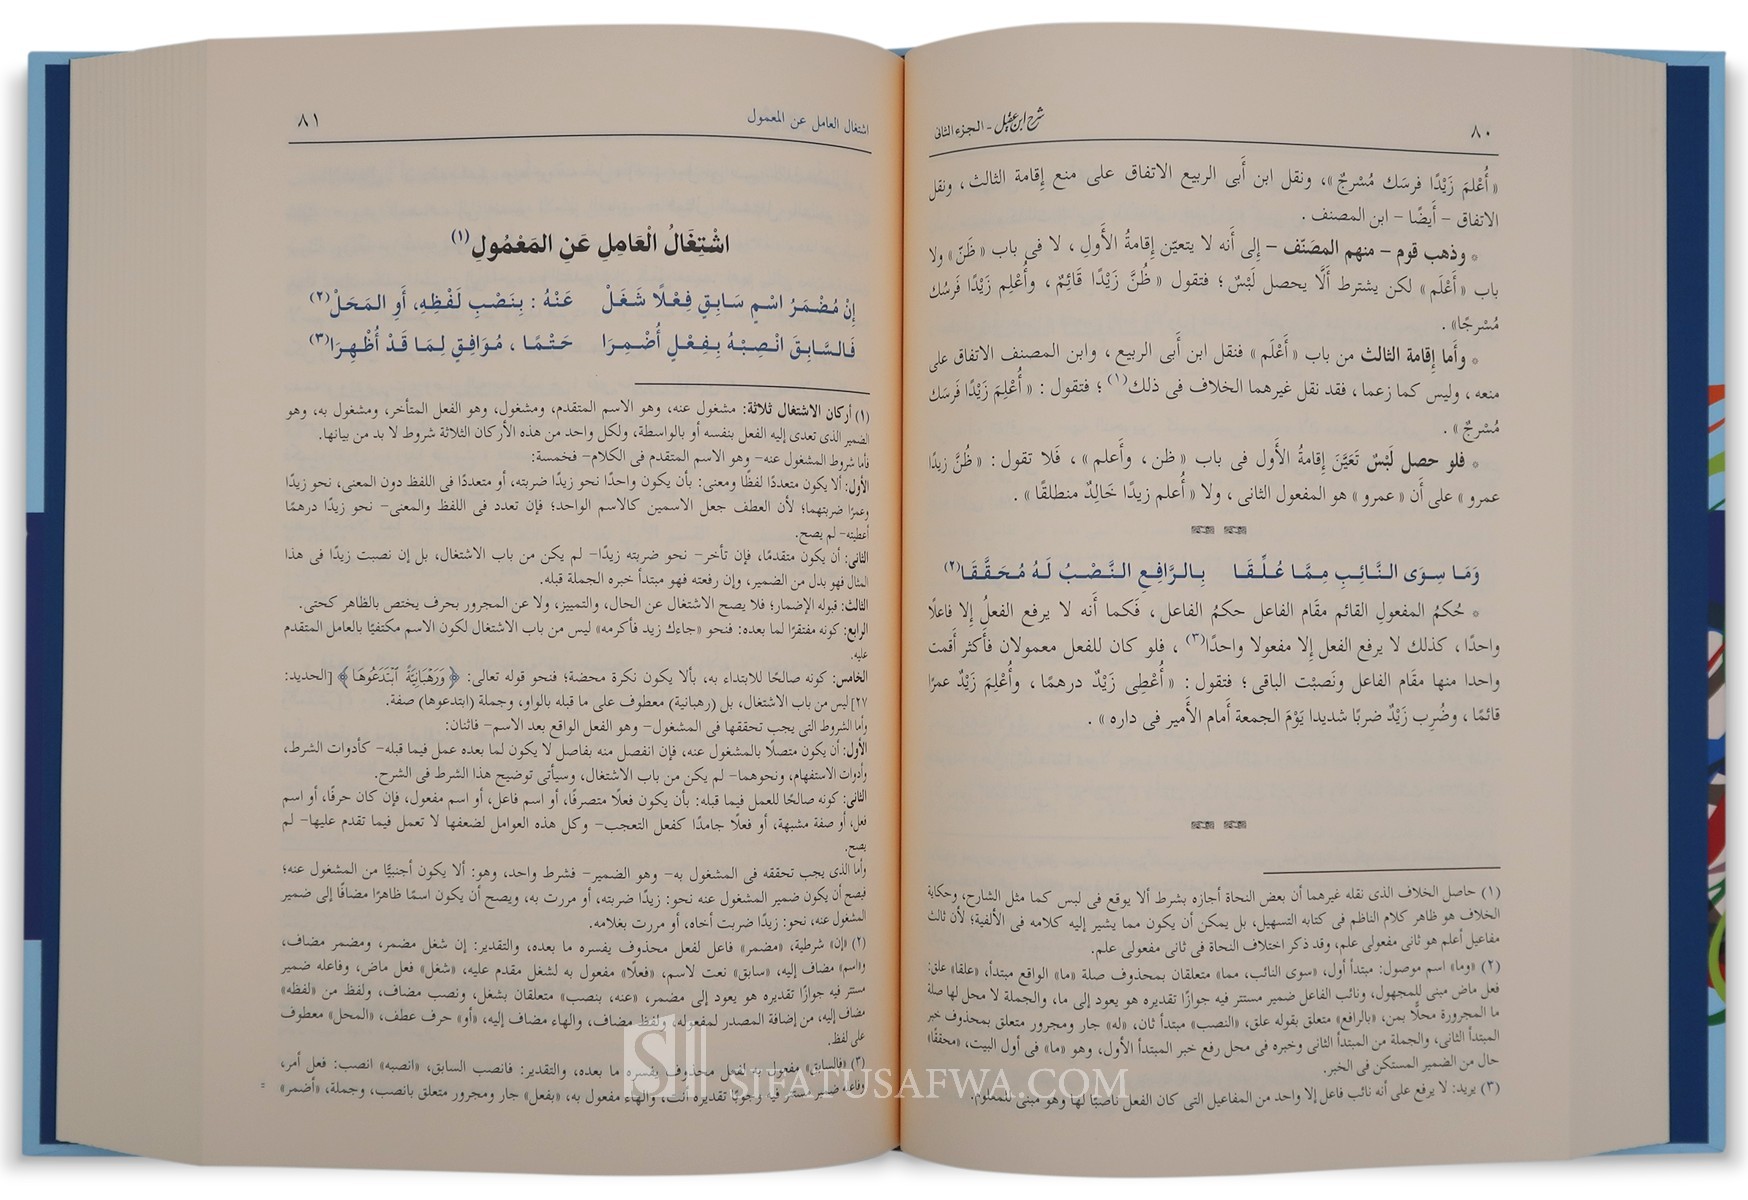 ٨٠
شرح ابن عقيل - الجزء الثانى
« أُعْلمَ زَيْدًا فرسَك مُسْرجٌ »، ونقل ابن أَبى الربيع الاتفاق على منع إِقامة الثالث ، ونقل
الاتفاق - أَيضًا - ابن المصنف .
* وذهب قوم - منهم المصَنّف - إِلى أَنه لا يتعيّن إِقامةُ الأَولِ ، لا فى باب « ظَنّ » ولا
باب « أَعْلَم » لكن يشترط أَلَّا يحصل لَبْسٌ ؛ فتقول « ظُنَّ زَيْدًا قَائِمٌ ، وأُعْلِم زَيْدًا فَرسُك
مُسْرجًا» .
* وأَما إِقامة الثالث من باب « أَعْلَم » فنقل ابن أَبى الربيع ، وابن المصنف الاتفاق على
منعه ، وليس كما زعما ، فقد نقل غيرهما الخلاف فى ذلك(١) ؛ فتقول : « أُعْلِمَ زَيْدًا فَرسَك
مُسْرجٌ » .
* فلو حصل لَبْسٌ تَعَيَّنَ إِقامةُ الأَول فى باب « ظن ، وأَعلم » ، فَلا تقول : « ظُنَّ زيدًا
عمرو » على أَن « عمرو » هو المفعول الثانى ، ولا « أُعلم زيدًا خَالِدٌ منطلقًا » .
وَمَا سِوَى النَّائِبِ مِمَّا عُلِّقَا بِالرَّافِعِ النَّصْبُ لَهُ مُحَقَّقَا(٢)
* حُكمُ المفعولِ القائم مقَام الفاعل حكمُ الفاعل ، فَكما أَنه لا يرفع الفعلُ إِلا فاعلًا
واحدًا ، كذلك لا يرفع الفعل إِلا مفعولا واحدًا(٣) ، فلو كان للفعل معمولان فأَكثر أَقمت
واحدا منها مقَام الفاعل ونَصبْت الباقى ؛ فتقول : « أُعْطِى زَيْدٌ درهمًا ، وأُعْلِمَ زَيْدٌ عمرًا
قائمًا ، وضُرِب زَيْدٌ ضربًا شديدا يَوْمَ الجمعة أَمام الأَمير فى داره » .
(١) حاصل الخلاف الذى نقله غيرهما أن بعض النحاة أجازه بشرط ألا يوقع فى لبس كما مثل الشارح، وحكاية
الخلاف هو ظاهر كلام الناظم فى كتابه التسهيل، بل يمكن أن يكون مما يشير إليه كلامه فى الألفية؛ لأن ثالث
مفاعيل أعلم هو ثانى مفعولى علم، وقد ذكر اختلاف النحاة فى ثانى مفعولى علم.
(٢) «وما» اسم موصول: مبتدأ أول، «سوى النائب، مما» متعلقان بمحذوف صلة «ما» الواقع مبتدأ، «علقا» علق:
فعل ماض مبنى للمجهول، ونائب الفاعل ضمير مستتر فيه جوازًا تقديره هو يعود إلى ما، والجملة لا محل لها صلة
ما المجرورة محلًّا بمن، «بالرافع» متعلق بقوله علق، «النصب» مبتدأ ثان، «له» جار ومجرور متعلق بمحذوف خبر
المبتدأ الثانى، والجملة من المبتدأ الثانى وخبره فى محل رفع خبر المبتدأ الأول، وهو «ما» فى أول البيت، «محققًا»
حال من الضمير المستكن فى الخبر.
(٣) يريد: لا يرفع على أنه نائب فاعل إلا واحد من المفاعيل التى كان الفعل ناصبًا لها وهو مبنى للمعلوم.
اشتغال العامل عن المعمول
٨١
اشْتِغَالُ الْعَامِلِ عَنِ المَعْمُولِ(١)
إِنْ مُضْمَرُ اسْمٍ سَابِقٍ فِعْلًا شَغَلْ عَنْهُ : بِنَصْبِ لَفْظِهِ، أَوِ المَحَلْ(٢)
فَالسَّابِقَ انْصِبْهُ بِفِعْلٍ أُضْمِرَا حَتْمًا ، مُوَافِقٍ لِمَا قَدْ أُظْهِرَا(٣)
(١) أركان الاشتغال ثلاثة: مشغول عنه، وهو الاسم المتقدم، ومشغول، وهو الفعل المتأخر، ومشغول به، وهو
الضمير الذى تعدى إليه الفعل بنفسه أو بالواسطة، ولكل واحد من هذه الأركان الثلاثة شروط لا بد من بيانها.
فأما شروط المشغول عنه- وهو الاسم المتقدم فى الكلام- فخمسة:
الأول: ألا يكون متعددًا لفظًا ومعنى: بأن يكون واحدًا نحو زيدًا ضربته، أو متعددًا فى اللفظ دون المعنى، نحو زيدًا
وعمرًا ضربتهما؛ لأن العطف جعل الاسمين كالاسم الواحد؛ فإن تعدد فى اللفظ والمعنى- نحو زيدًا درهمًا
أعطيته- لم يصح.
الثانى: أن يكون متقدمًا، فإن تأخر- نحو ضربته زيدًا- لم يكن من باب الاشتغال، بل إن نصبت زيدًا فى هذا
المثال فهو بدل من الضمير، وإن رفعته فهو مبتدأ خبره الجملة قبله.
الثالث: قبوله الإضمار؛ فلا يصح الاشتغال عن الحال، والتمييز، ولا عن المجرور بحرف يختص بالظاهر كحتى.
الرابع: كونه مفتقرًا لما بعده: فنحو «جاءك زيد فأكرمه» ليس من باب الاشتغال لكون الاسم مكتفيًا بالعامل المتقدم
عليه.
الخامس: كونه صالحًا للابتداء به، بألا يكون نكرة محضة؛ فنحو قوله تعالى: ﴿ وَرَهْبَانِيَّةً ٱبْتَدَعُوهَا ﴾ [الحديد:
٢٧] ليس من باب الاشتغال، بل (رهبانية) معطوف على ما قبله بالواو، وجملة (ابتدعوها) صفة.
وأما الشروط التى يجب تحققها فى المشغول- وهو الفعل الواقع بعد الاسم- فاثنان:
الأول: أن يكون متصلًا بالمشغول عنه، فإن انفصل منه بفاصل لا يكون لما بعده عمل فيما قبله- كأدوات الشرط،
وأدوات الاستفهام، ونحوهما- لم يكن من باب الاشتغال، وسيأتى توضيح هذا الشرط فى الشرح.
الثانى: كونه صالحًا للعمل فيما قبله: بأن يكون فعلًا متصرفًا، أو اسم فاعل، أو اسم مفعول، فإن كان حرفًا، أو اسم
فعل، أو صفة مشبهة، أو فعلًا جامدًا كفعل التعجب- وكل هذه العوامل لضعفها لا تعمل فيما تقدم عليها- لم
يصح.
وأما الذى يجب تحققه فى المشغول به- وهو الضمير- فشرط واحد، وهو: ألا يكون أجنبيًّا من المشغول عنه؛
فيصح أن يكون ضمير المشغول عنه نحو: زيدًا ضربته، أو مررت به، ويصح أن يكون اسمًا ظاهرًا مضافًا إلى ضمير
المشغول عنه، نحو: زيدًا ضربت أخاه، أو مررت بغلامه.
(٢) «إن» شرطية، «مضمر» فاعل لفعل محذوف يفسره ما بعده، والتقدير: إن شغل مضمر، ومضمر مضاف،
و«اسم» مضاف إليه، «سابق» نعت لاسم، «فعلًا» مفعول به لشغل مقدم عليه، «شغل» فعل ماض، وفاعله ضمير
مستتر فيه جوازًا تقديره هو يعود إلى مضمر، «عنه، بنصب» متعلقان بشغل، ونصب مضاف، ولفظ من «لفظه»
مضاف إليه، من إضافة المصدر لمفعوله، ولفظ مضاف، والهاء مضاف إليه، «أو» حرف عطف، «المحل» معطوف
على لفظ.
(٣) «فالسابق» مفعول به لفعل محذوف يفسره ما بعده، والتقدير: فانصب السابق، «انصبه» انصب: فعل أمر،
وفاعله ضمير مستتر فيه وجوبًا تقديره أنت، والهاء مفعول به، «بفعل» جار ومجرور متعلق بانصب، وجملة، «أضمر» =
SIFATUSAFWA.COM